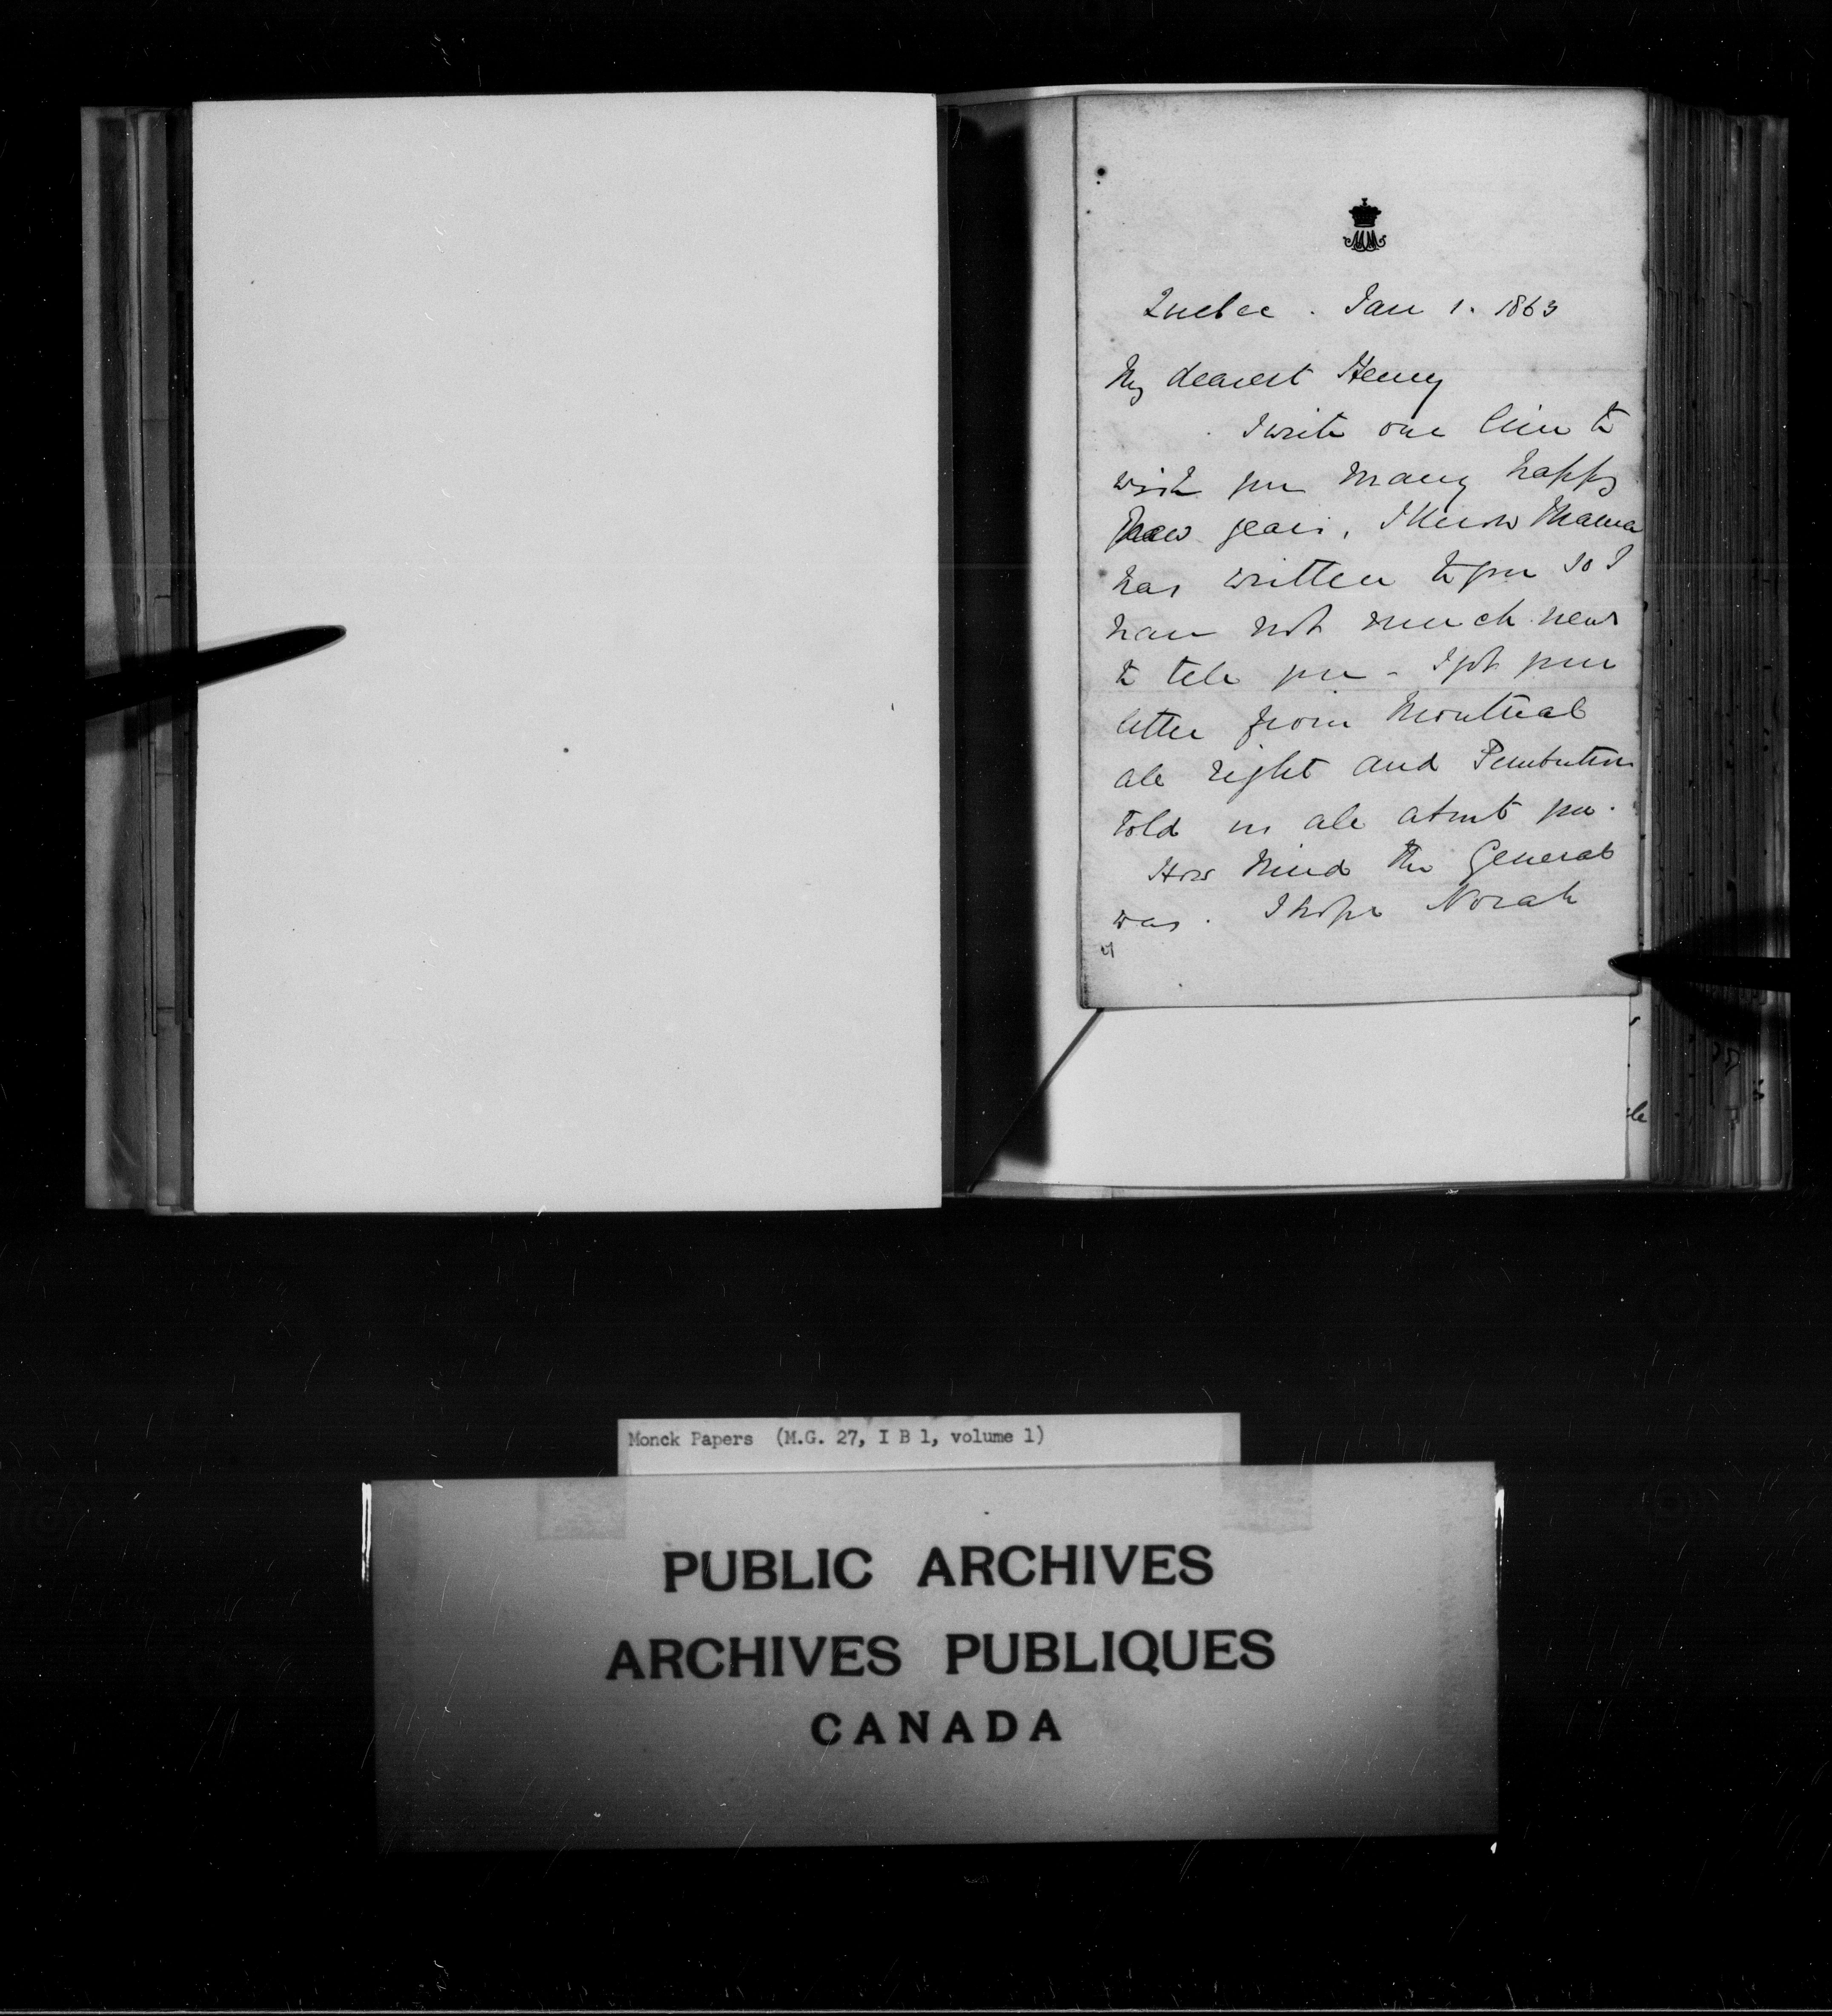 Quebec. Jan 1. 1863
My dearest Henry
I write one line to
wish you many happy
New years, I know Mama
has written to you so I
have not much news
to tell you - I got your
letter from Montreal
all right and Pemberton
told us all about you.
How kind the General
was. I hope Norah
Monck Papers (M.G. 27, I B 1, volume 1)
PUBLIC ARCHIVES
ARCHIVES PUBLIQUES
CANADA